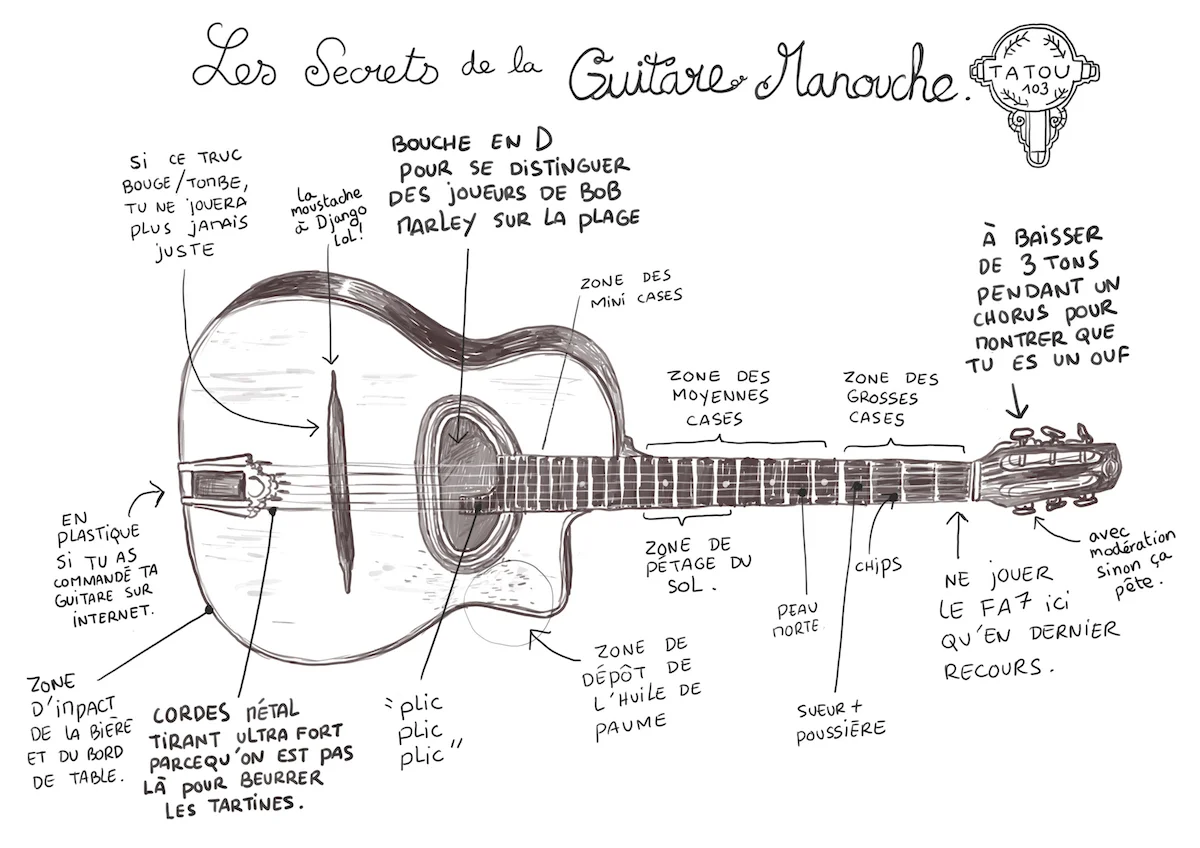 Les Secrets de la Guitare Manouche.
TATOU
103
SI CE TRUC
BOUGE/TOMBE,
TU NE JOUERA
PLUS JAMAIS
JUSTE
La
moustache
à Django
LoL!
BOUCHE EN D
POUR SE DISTINGUER
DES JOUEURS DE BOB
MARLEY SUR LA PLAGE
ZONE DES
MINI CASES
À BAISSER
DE 3 TONS
PENDANT UN
CHORUS POUR
MONTRER QUE
TU ES UN OUF
ZONE DES
MOYENNES
CASES
ZONE DES
GROSSES
CASES
EN
PLASTIQUE
SI TU AS
COMMANDÉ TA
GUITARE SUR
INTERNET.
ZONE DE
PÉTAGE DU
SOL.
CHIPS
avec
modération
sinon ça
pête.
PEAU
MORTE
NE JOUER
LE FA7 ici
QU'EN DERNIER
RECOURS.
ZONE
D'IMPACT
DE LA BIÈRE
ET DU BORD
DE TABLE.
CORDES MÉTAL
TIRANT ULTRA FORT
PARCEQU'ON EST PAS
LÀ POUR BEURRER
LES TARTINES.
"plic
plic
plic"
ZONE DE
DÉPÔT DE
L'HUILE DE
PAUME
SUEUR +
POUSSIÈRE